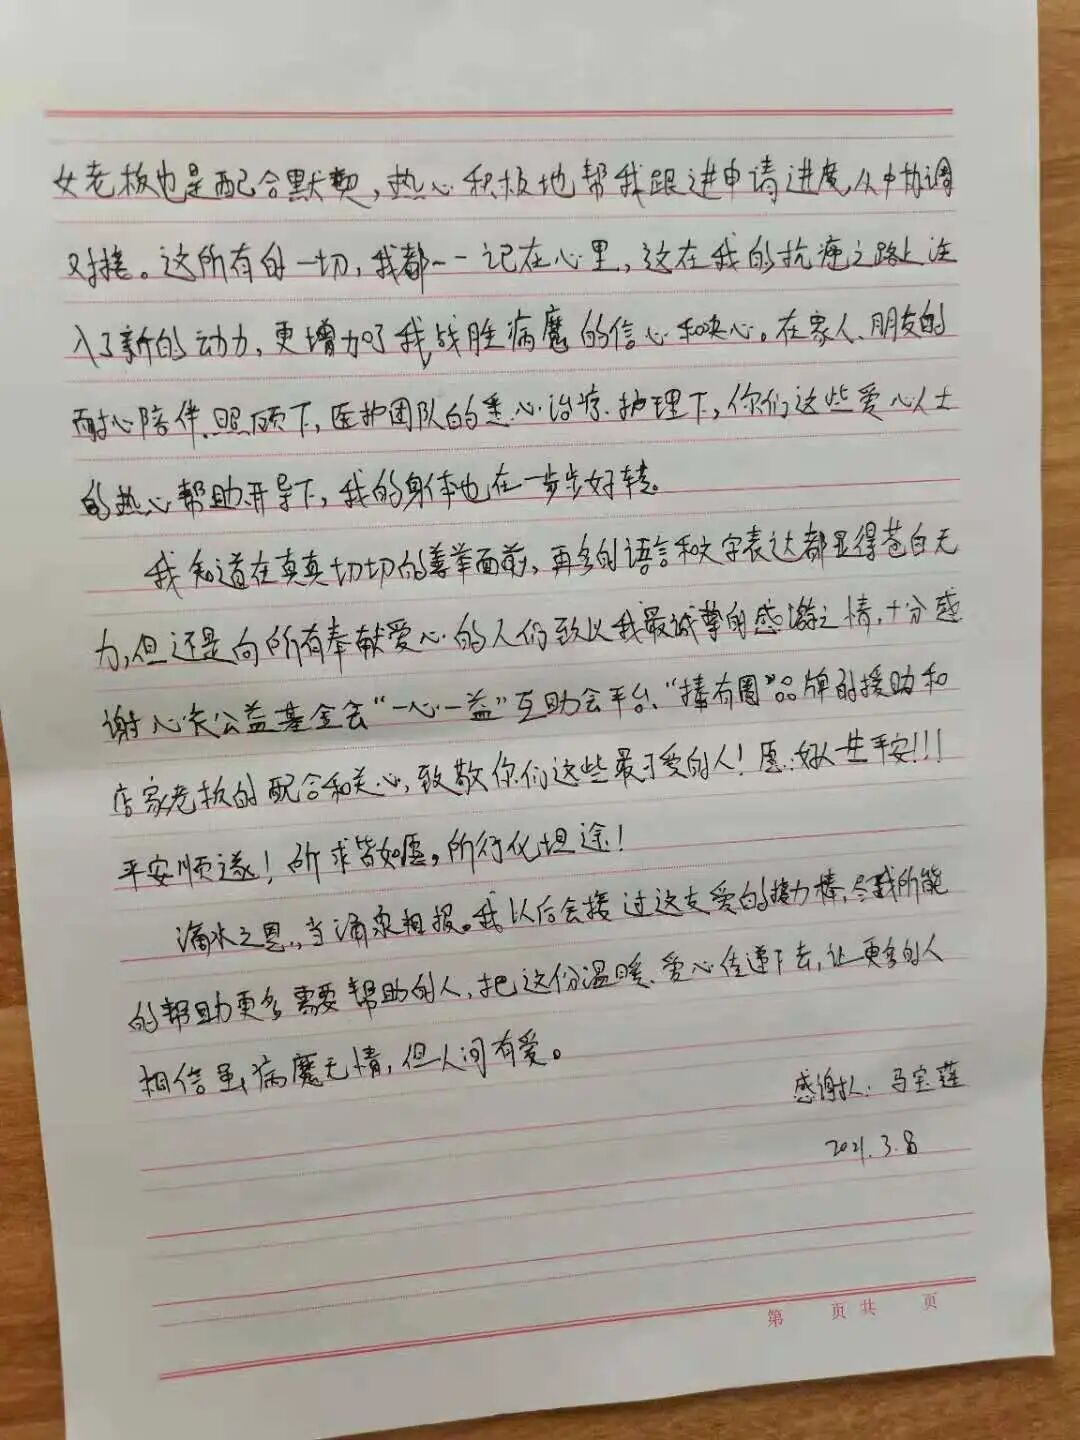 女老板也是配合默契，热心积极地帮我跟进申请进度，从中协调
对接。这所有的一切，我都一一记在心里，这在我的抗癌之路上注
入了新的动力，更增加了我战胜病魔的信心和决心。在家人、朋友的
耐心陪伴、照顾下，医护团队的悉心治疗、护理下，你们这些爱心人士
的热心帮助、开导下，我的身体也在一步步好转。
我知道在真真切切的善举面前，再多的语言和文字表达都显得苍白无
力，但还是向所有奉献爱心的人们致以我最诚挚的感谢之情，十分感
谢心失公益基金会“一心一益”互助会平台、“捧有圈”品牌的援助和
店家老板的配合和关心，致敬你们这些最可爱的人！愿：好人一生平安!!!
平安顺遂！所求皆如愿，所行化坦途！
滴水之恩，当涌泉相报。我以后会接过这支爱的接力棒，尽我所能
的帮助更多需要帮助的人，把这份温暖、爱心传递下去，让更多的人
相信虽病魔无情，但人间有爱。
感谢人：马宝莲
2021.3.8
第 页 共 页